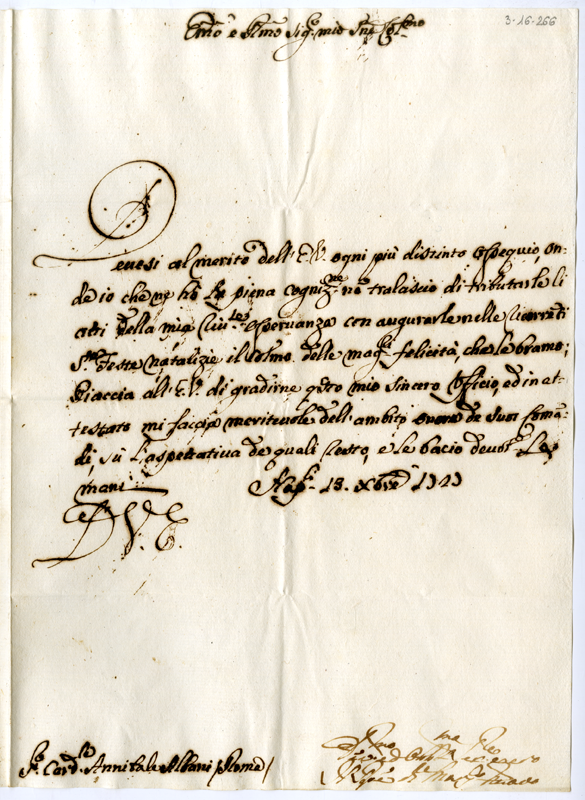 3-16-266
Em̃o e Rm̃o Sig.r mio Sig.r Col.mo
Deuesi al merito dell' E.V. ogni più distinto ossequio, on-
de io che ne hò la piena cogniz.ne nõ tralascio di tributarle li
atti della mia riu.te osseruanza con augurarle nelle ricorrēti
S.me Feste natalizie il colmo delle mag.ri felicità, che le bramo;
Piaccia all' E.V. di gradirne q̃sto mio sincero officio, ed in at-
testato mi faccia meriteuole dell' ambito onore de suoi comã-
di, sù l'aspettatiua de quali resto, e le bacio deuot.te le
mani
Nap. 13. Xbre 1721
D. V. E.
S.r Card.le Annibale Albani / Roma /